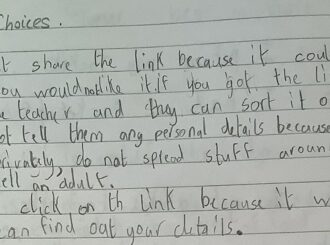 Choices.
t share the link because it coul
ou would not like it.if you got the li
e teacher and they can sort it o
ot tell them any personal details because
rivately do not spread stuff aroun
ell an adult.
click on th link because it w
an find out your details.